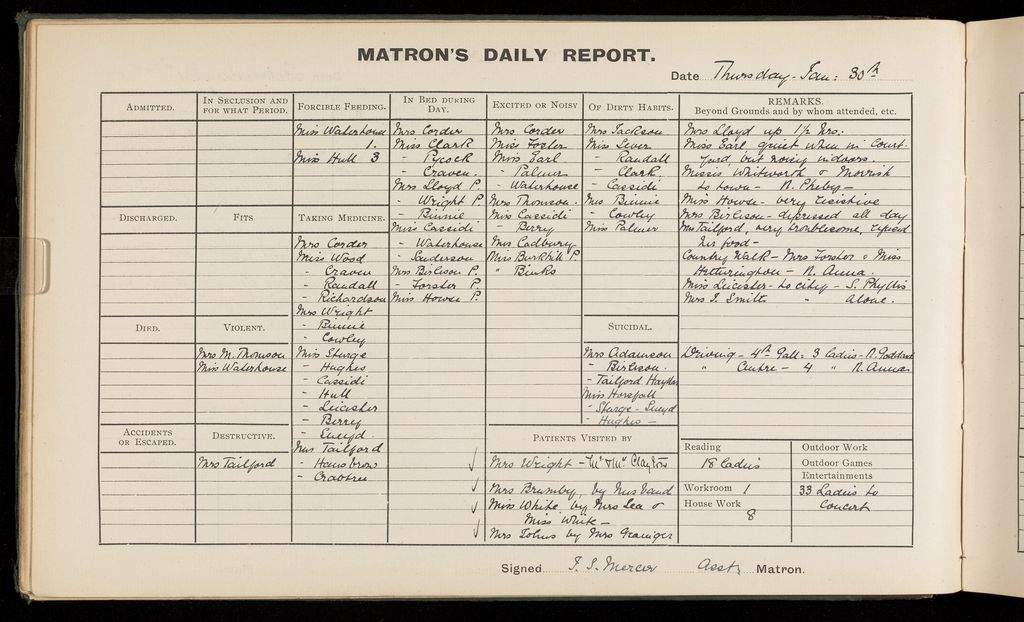 MATRON'S DAILY REPORT.
Date Thursday. Jan: 30th
ADMITTED.
IN SECLUSION AND FOR WHAT PERIOD.
FORCIBLE FEEDING.
Miss Waterhouse
1.
Miss Hull 3
IN BED DURING DAY.
Mrs Corder
Miss Clark
- Pycock
- Craven.
Mrs Lloyd P.
- Wright P
- Binnie
Miss Cassidi
- Waterhouse
- Sanderson
Mrs Birlison P.
- Forster P.
Miss Howse P.
EXCITED OR NOISY
Mrs Corder
Miss Foster
Miss Earl
- Palmer
- Waterhouse
Mrs Thomson.
Miss Cassidi
- Berry
Mrs Cadbury
Mrs Burkhill P.
" Binks
OF DIRTY HABITS.
Mrs Jackson
Miss Lever
- Randall
- Clark.
- Cassidi
Mrs Binnie
- Cowley
Miss Palmer
REMARKS.
Beyond Grounds and by whom attended, etc.
Mrs Lloyd up 1½ hrs.
Miss Earl quiet when in Court-
yard, but noisy indoors.
Misses Whitworth & Morrish
to town - N. Pheby -
Miss Howse - very resistive
Mrs Birlison - depressed all day
Mrs Tailford, very troublesome, refused
her food -
Country Walk - Mrs Forster & Miss
Hetherington - N. Anna.
Miss Leicester - to city - S. Phyllis
Mrs I. Smith " alone.
DISCHARGED.
FITS
TAKING MEDICINE.
Mrs Corder
Miss Wood
- Craven
- Randall
- Richardson
Mrs Wright
- Binnie
- Cowley
Miss Sturge
- Hughes
- Cassidi
- Hull
- Leicester
- Berry
- Lueyd.
Mrs Tailford
- Hansbrow
- Crabtree
DIED.
VIOLENT.
Mrs M. Thomson
Miss Waterhouse
SUICIDAL.
Mrs Adamson
- Birlison.
- Tailford Hayden
Miss Horsfall
- Sturge - Lueyd
- Hughes -
Driving - 4th Gall: 3 ladies - N. Goddard
" Centre - 4 " N. Anna
ACCIDENTS OR ESCAPED.
DESTRUCTIVE.
Mrs Tailford
PATIENTS VISITED BY
Mrs Wright - Mr & Mrs Clayton
Mrs Brumby, by husband
Miss White, by Mrs Lea &
Miss White -
Mrs Johns by Mrs Grainger
Reading
18 ladies
Workroom 1
House Work
8
Outdoor Work
Outdoor Games
Entertainments
33 Ladies to
Concert
Signed I. S. Mercer Asst: Matron.